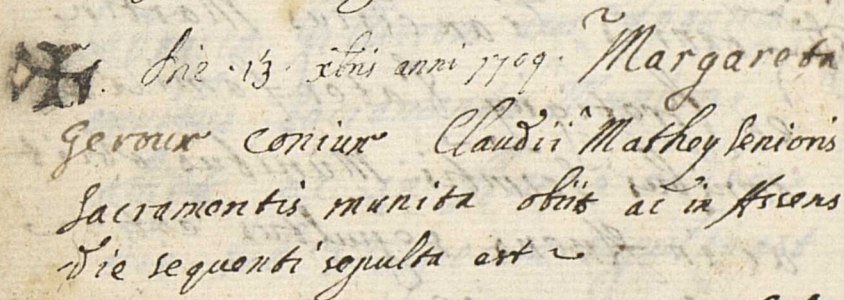 Die · 13 · xbris anni 1709 · Margareta
Geroux coniux Claudii Mathey senioris
Sacramentis munita obiit ac in Assens
die sequenti sepulta est